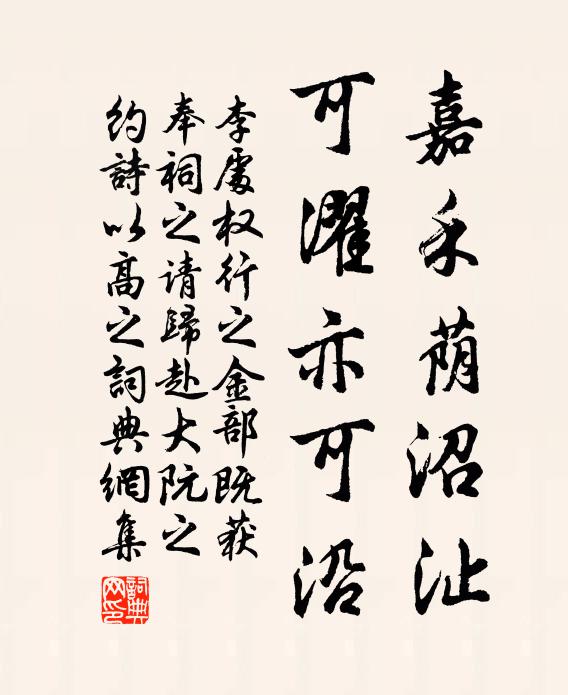 嘉禾荫沼沚
可濯亦可沿
李處权行之金部既获
奉祠之请歸赴大阮之
约詩以高之詞典網集
詞典网印